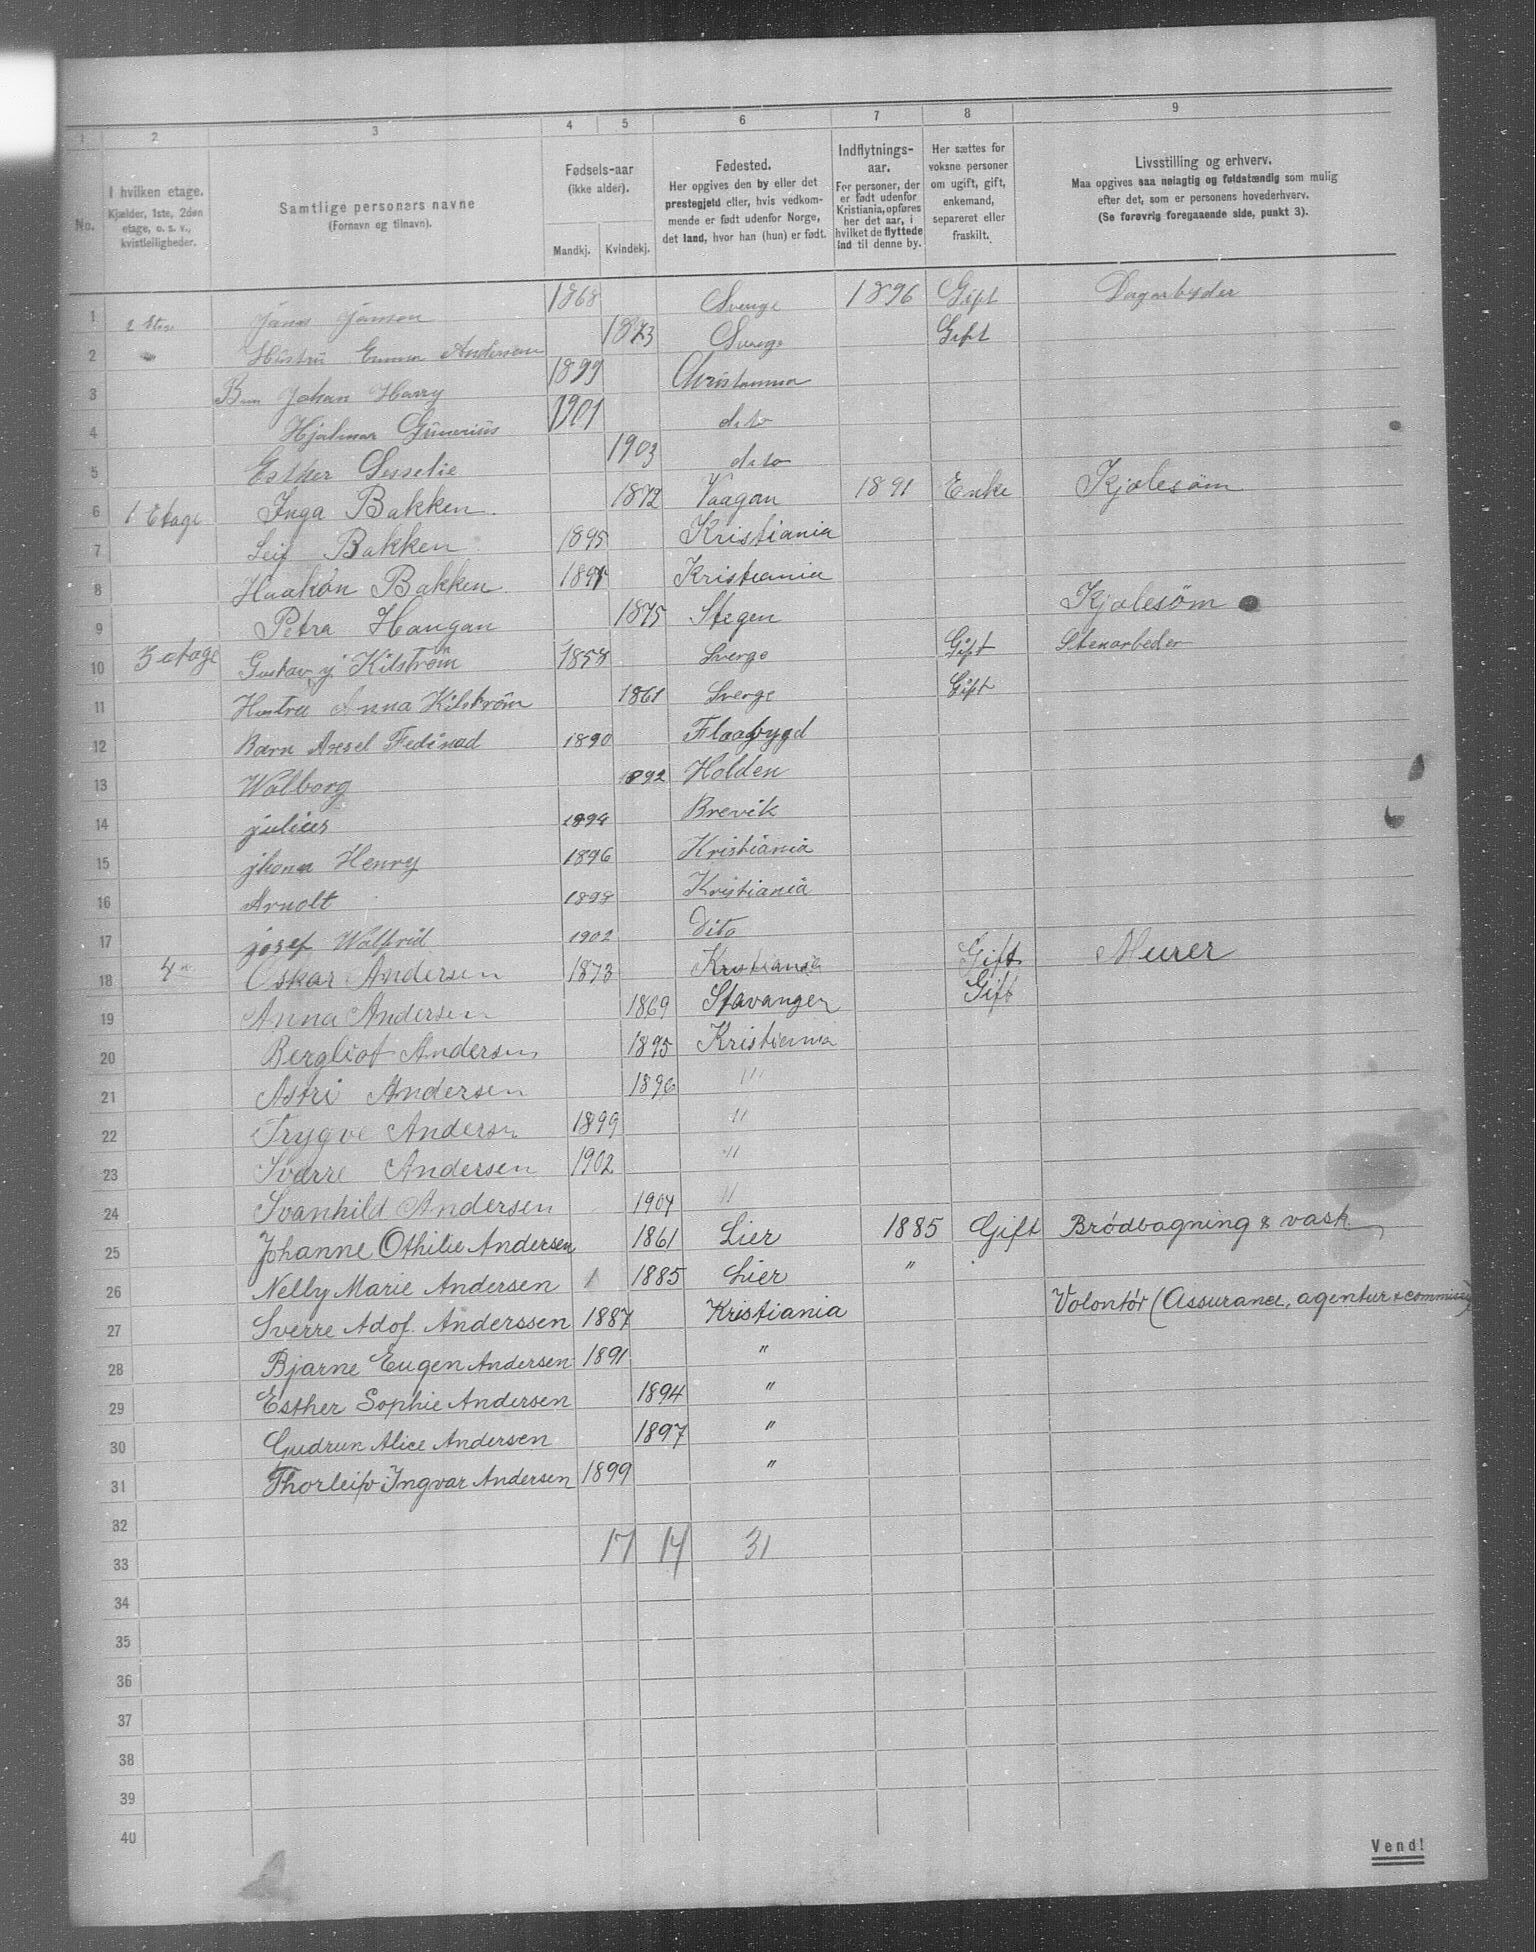 1 2 3 4 5 6 7 8 9
No.
I hvilken etage.
Kjælder, 1ste, 2den
etage, o. s. v.,
kvistleiligheder.
Samtlige personers navne
(Fornavn og tilnavn).
Fødsels-aar
(ikke alder).
Mandkj. Kvindekj.
Fødested.
Her opgives den by eller det
prestegjeld eller, hvis vedkom-
mende er født udenfor Norge,
det land, hvor han (hun) er født.
Indflytnings-
aar.
For personer, der
er født udenfor
Kristiania, opføres
her det aar, i
hvilket de flyttede
ind til denne by.
Her sættes for
voksne personer
om ugift, gift,
enkemand,
separeret eller
fraskilt.
Livsstilling og erhverv.
Maa opgives saa nøiagtig og fuldstændig som mulig
efter det, som er personens hovederhverv.
(Se forøvrig foregaaende side, punkt 3).
1 2 Etage Janson 1868 Sverige 1896 Gift Dagarbyder
2 Hustru Emma Anderson 1873 Sverge Gift
3 Barn Johan Harry 1899 Christiania
4 Hjalmar 1901 dito
5 Esther 1903 dito
6 1 Etage Inga Bakken. 1872 Vaagan 1891 Enke Kjolesøm
7 Leif Bakken 1895 Kristiania
8 Haakon Bakken. Kristiania
9 Petra Haugan 1875 Stegen Kjolesøm
10 3 etage Gustav j Kilström 1858 Sverge Gift Stenarbeder
11 Hustru Anna Kilström 1861 Sverge Gift
12 Barn Axsel Fedinad 1890 Flaabygd
13 Walborg 1892 Holden
14 julius 1894 Brevik
15 Henry 1896 Kristiania
16 Arnolt 1898 Kristiania
17 josef Walfrid 1902 Dito
18 4 " Oskar Andersen 1873 Kristiania Gift Murer
19 Anna Andersen 1869 Stavanger Gift
20 Bergliot Andersen 1895 Kristiania
21 Astri Andersen 1896 "
22 Trygve Andersn 1899 "
23 Sverre Andersen 1902 "
24 Svanhild Andersen 1904 "
25 Johanne Othilie Andersen 1861 Lier 1885 Gift Brödbagning & vask
26 Nelly Marie Andersen 1885 Lier "
27 Sverre Adof. Anderssen 1887 Kristiania Volontör (Assurance, agentur & commision)
28 Bjarne Eugen Andersen 1891 "
29 Esther Sophie Andersen 1894 "
30 Gudrun Alice Andersen 1897 "
31 Thorleif Ingvar Andersen 1899 "
32
33 17 14 31
34
35
36
37
38
39
40
Vend!